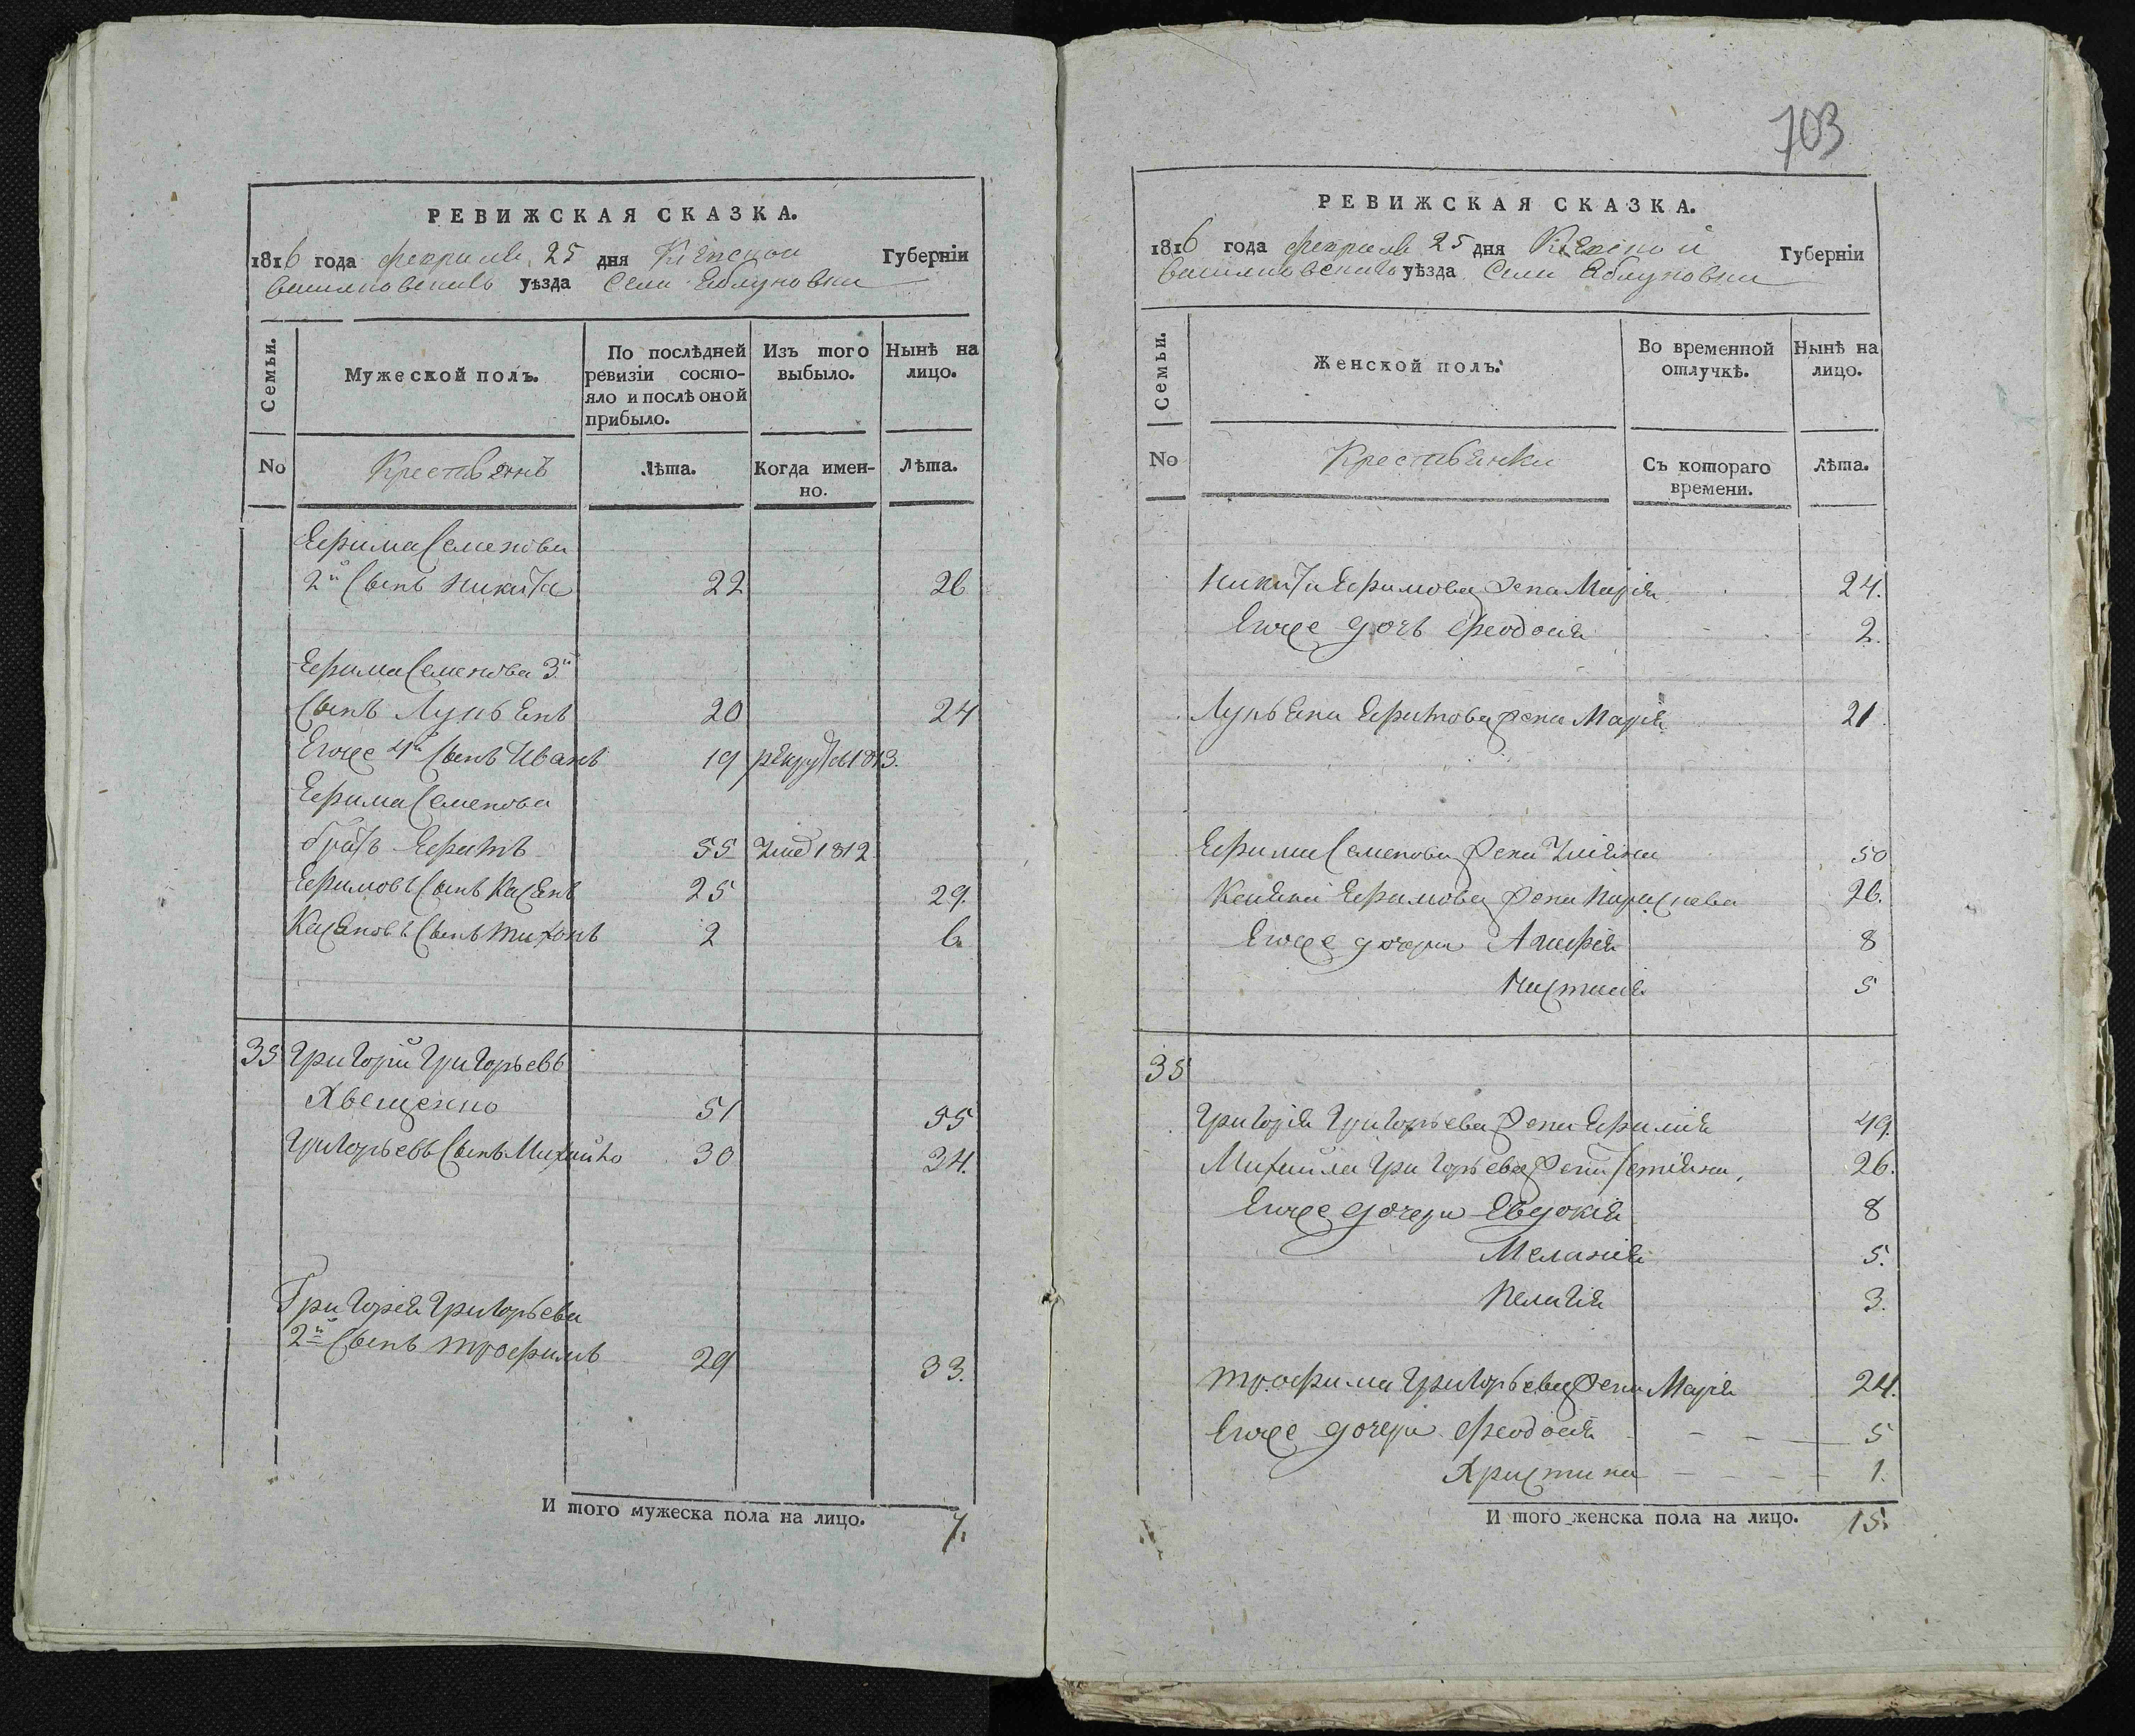 РЕВИЖСКАЯ СКАЗКА.
1816 года февраля 25 дня Кіевской Губерніи
Василковскаго уѣзда Села Яблуновки
Семьи.
Мужеской полъ.
По послѣдней ревизіи состояло и послѣ оной прибыло.
Изъ того выбыло.
Нынѣ на лицо.
No
Крестьянъ
Лѣта.
Когда имен-
но.
Лѣта.
Ефима Семенова
2й Сынъ Никита 22 26
Ефима Семенова 3й
Сынъ Лукьянъ 20 24
Егоже 4й Сынъ Иванъ 19 рекрут 1813.
Ефима Семенова
братъ Ефимъ 55 Умер 1812
Ефимовъ Сынъ Касянъ 25 29.
Касяновъ Сынъ Тихонъ 2 6.
35 Григорій Григорьевъ
Хвещенко 51 55
Григорьевъ Сынъ Михайло 30 24.
Григорія Григорьева
2й Сынъ Трофимъ 29 33.
И того мужеска пола на лицо. 7.
703
РЕВИЖСКАЯ СКАЗКА.
1816 года февраля 25 дня Кіевской Губерніи
Василковскаго уѣзда Села Яблуновки
Семьи.
Женской полъ.
Во временной отлучкѣ.
Нынѣ на лицо.
No
Крестьянки
Съ котораго времени.
Лѣта.
Никиты Ефимова жена Марія 24.
Егоже дочь Феодосія 2.
Лукьяна Ефимова жена Марія 21.
Ефима Семенова жена Уліяна 50
Касяна Ефимова жена Параскева 26.
Егоже дочери Агафія 8
Настасія 5
35
Григорія Григорьева жена Ефимія 49.
Михайла Григорьева жена Татіяна, 26.
Егоже дочери Евдокія 8
Меланія 5.
Пелагія 3.
Трофима Григорьева жена Марія 24.
Егоже дочери Феодосія 5
Христина 1.
И того женска пола на лицо. 15.